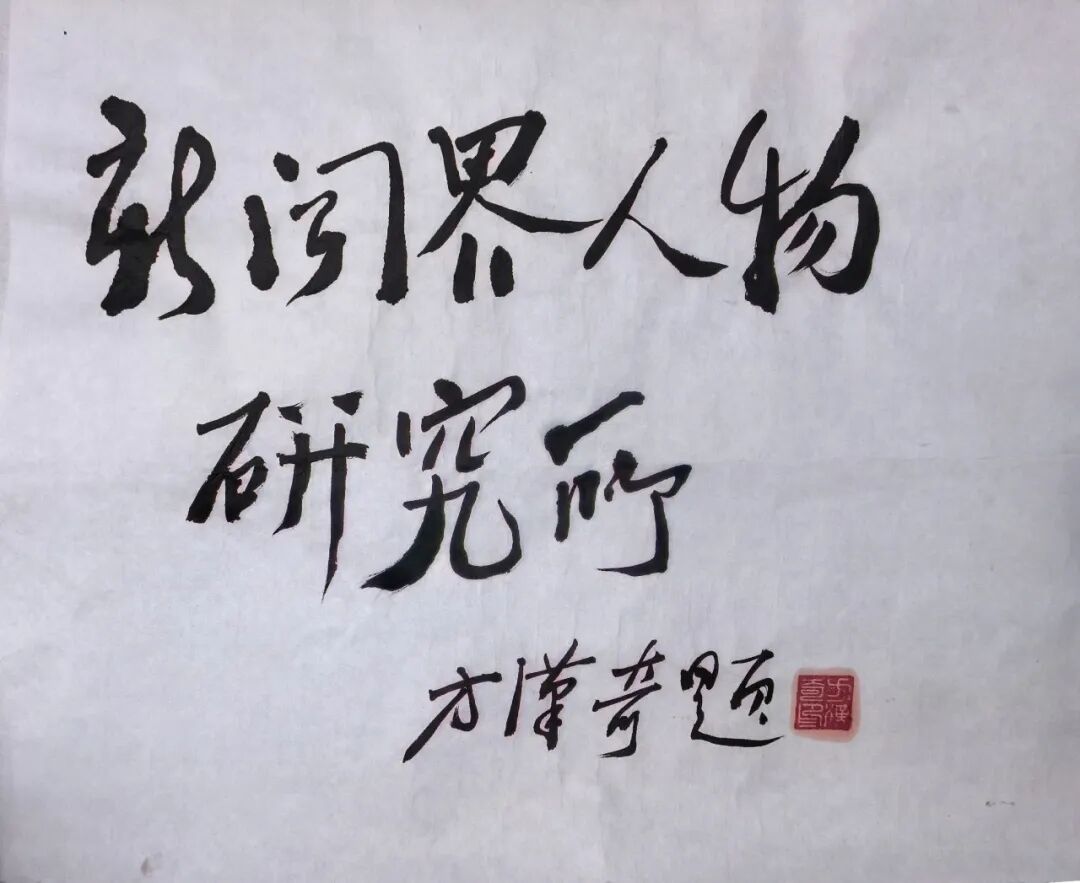 新闻界人物
研究所
方漢奇题